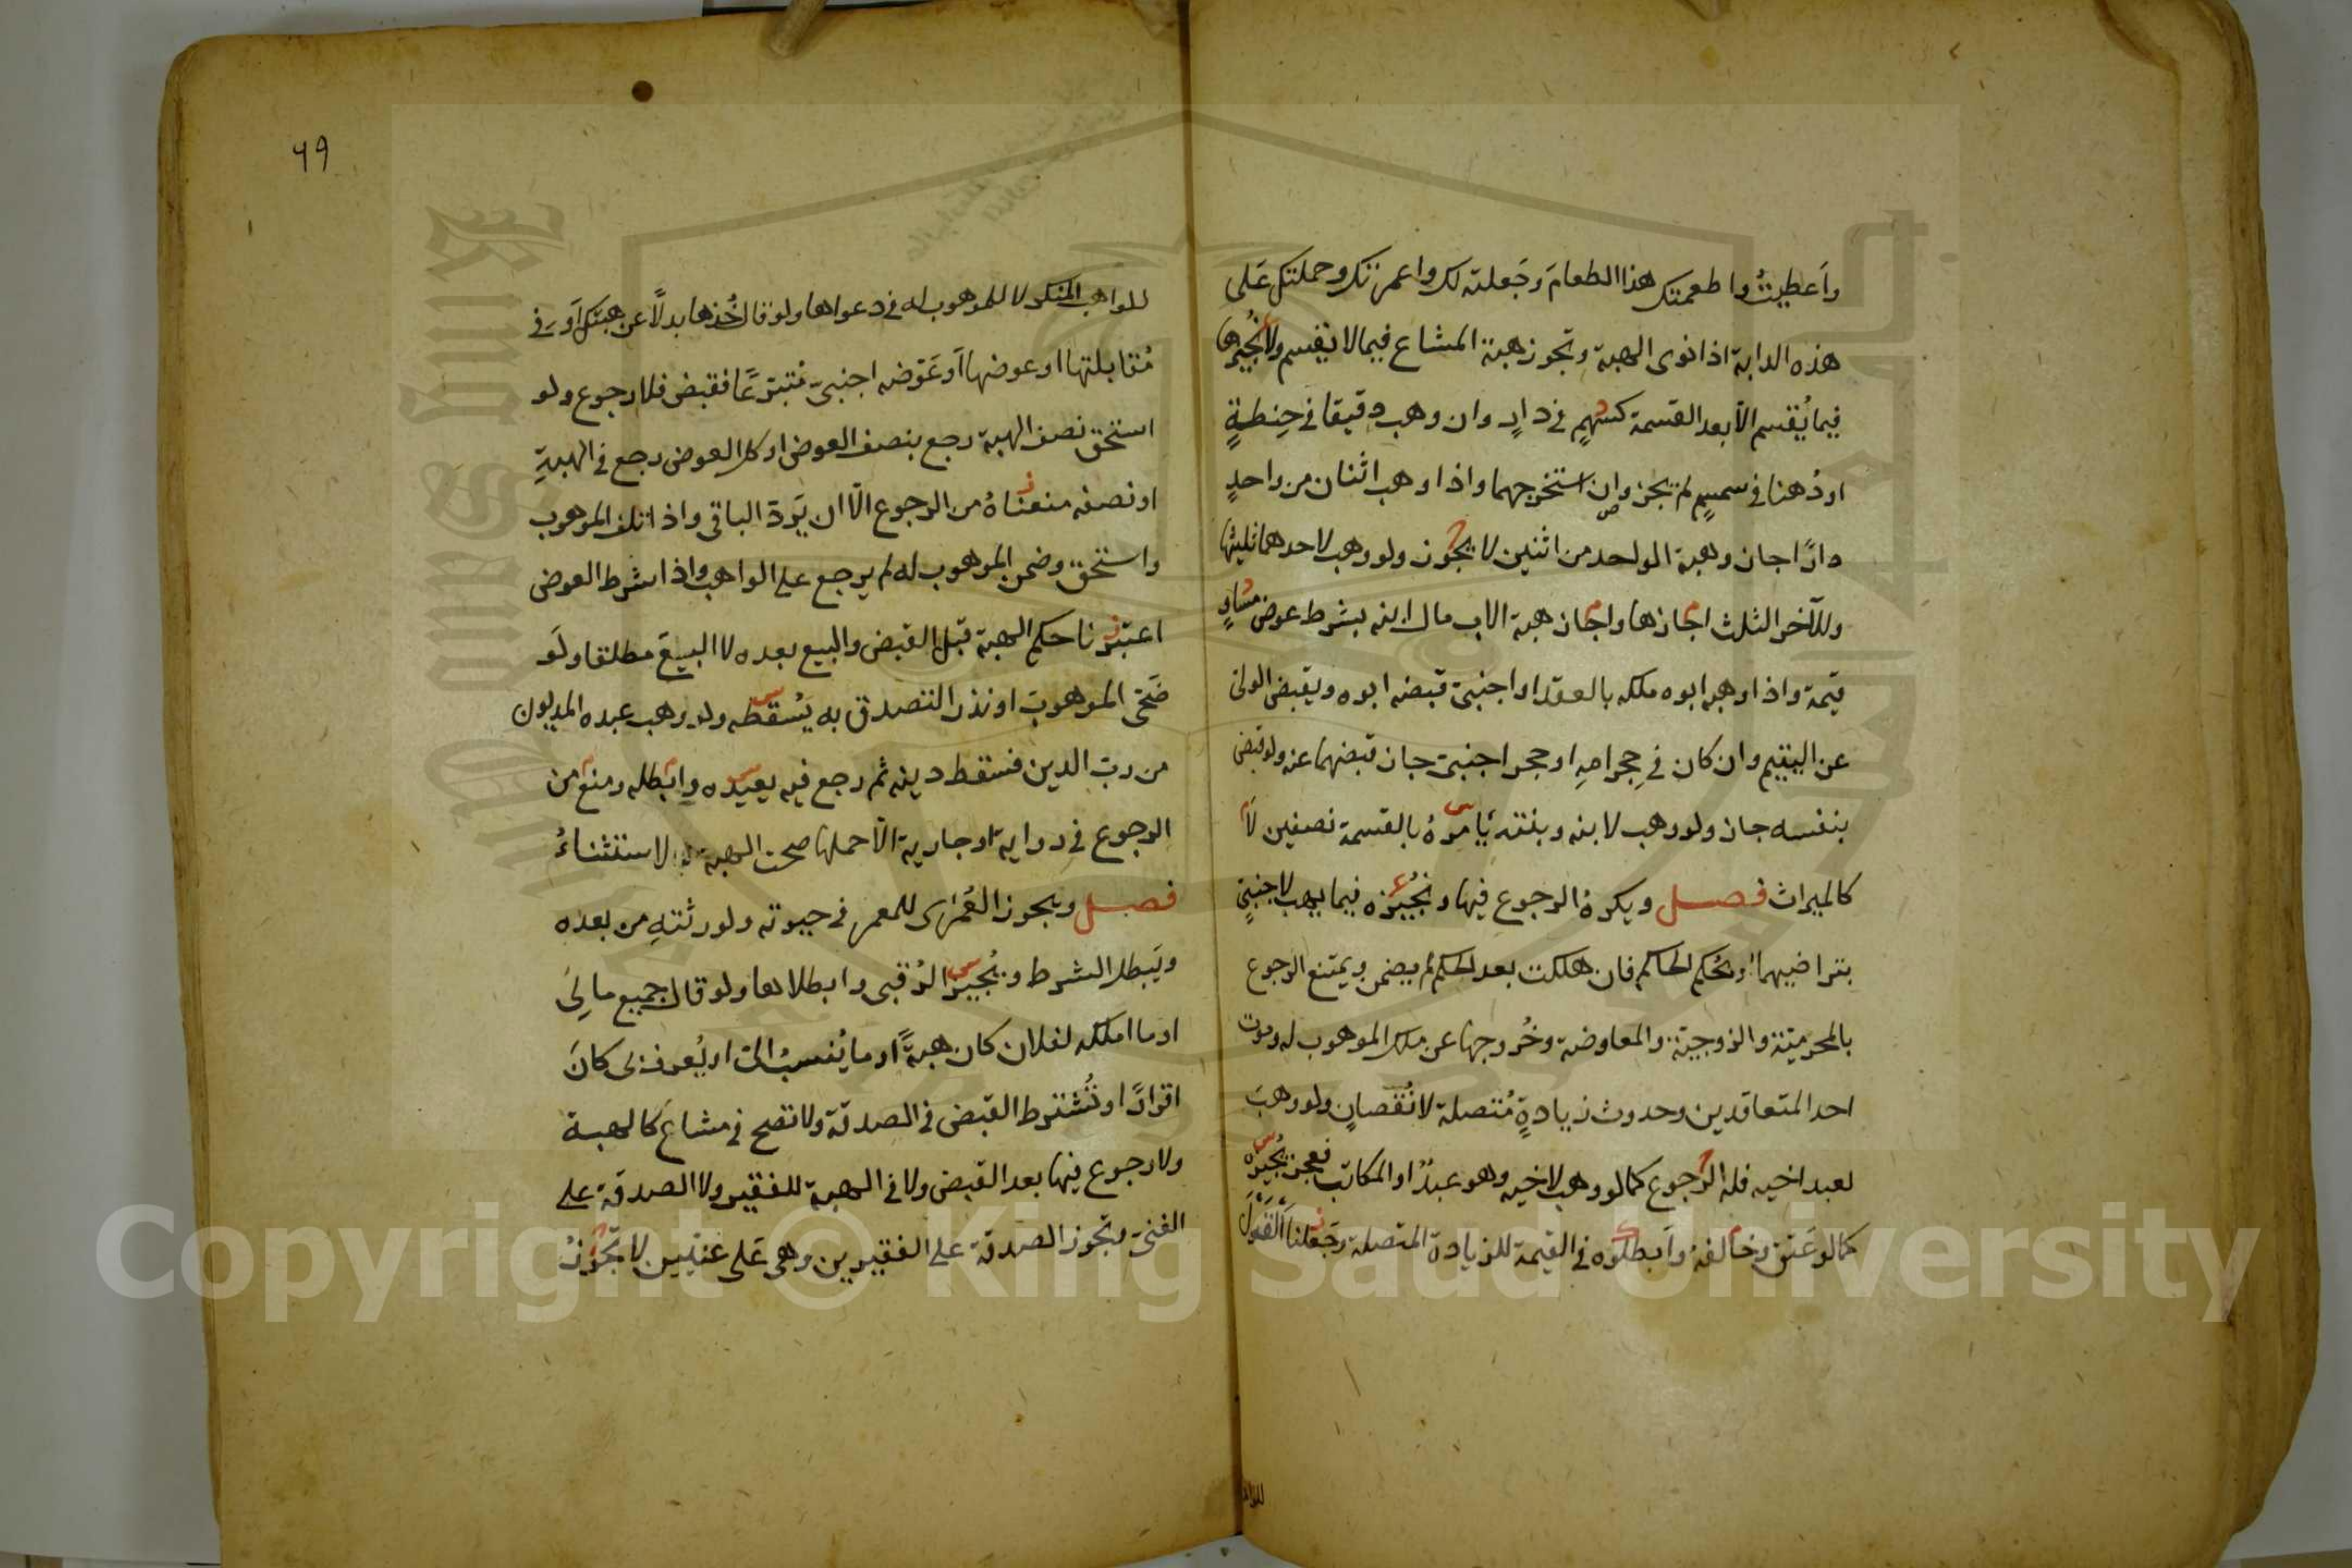 واَعطيتُ واطعمتك هذا الطعامَ وجَعلته لك واعمرتك وحملتك عَلى
هذه الدابة اذا نوى الهبة وتجوز هبة المشاع فيما لا يقسم ولا نُجيزها
فيما يُقسم الا بعد القسمة كسَهمٍ في دارٍ وان وهب دقيقا في حِنطةٍ
او دُهنا في سمسمٍ لم يجز وان استخرجهما واذا وهب اثنان من واحدٍ
دارًا جاز وهبة الواحد من اثنين لا يجوز ولو وهب لاحدهما ثلثيها
وللآخر الثلث اجازها واجاز هبة الاب مال ابنه بشرط عوض مساوٍ
قيمة واذا وهبه ابوه ملكه بالعقد او اجنبىّ قبضه ابوه ويقبض الولى
عن اليتيم وان كان في حِجر امهِ او حجر اجنبىّ جاز قبضهما عنه ولو قبض
بنفسه جاز ولو وهب لابنه وبنته يامرهُ بالقسمة نصفين لا
كالميراث فصل ويكرهُ الرجوع فيها ونُجيزه فيما يهب لاجنبىٍّ
بتراضيهما او بحُكم الحاكم فان هلكت بعد الحكم لم يضمن ويمتنع الرجوع
بالمحرميّة والزوجيّة والمعاوضة وخُروجها عن ملك الموهوب له وموت
احد المتعاقدين وحدوث زيادةٍ مُتصلة لا نُقصانٍ ولو وهبَ
لعبد اخيه فله الرجوع كما لو وهب لاخيه وهو عبدٌ او المكاتب فعجز يُجيزه
كما لو عَتق وخالفهُ واَبطلوه في القيمة للزيادة المتصلة وجَعلنا القَولَ
للواهب
٦٩
للواهب المنكر لا للموهوب له في دعواها ولو قال خُذها بدلًا عن هبتك اَو في
مُقابلتها او عوضها اَو عَوّضه اجنبىّ مُتبرّعًا فقبض فلا رجوع ولو
استحق نصف الهبة رجع بنصف العوض او كل العوض رجع في الهبةِ
او نصفه منعناهُ من الرجوع الّا ان يَردّ الباقى واذا تلف الموهوب
واستحق وضمن الموهوب له لم يرجع على الواهب واذا شرط العوض
اعتبرنا حكم الهبة قبل القبض والبيع بعده لا البيعَ مطلقا ولَو
ضَحّى الموهوبَ او نذر التصدق به يُسْقطه ولو وهب عبده المديون
من ربّ الدين فسقط دينه ثم رجع فيه يعيده وابطله ومنع من
الرجوع في رواية او جارية الّا حملها صحت الهبة لا الاستثناءُ
فصل ويجوز العُمرى للمعمر في حيوته ولورثتهِ من بعده
ويَبطل الشرط ويُجيز الرُقبى وابطلاها ولو قال جميع مالِىَ
او ما املكه لفلان كان هبةً او ما يُنسبُ الىّ او يُعرف لى كانَ
اقرارًا وتُشترط القبض في الصدقة ولا تصح في مشاع كالهبة
ولا رجوع فيها بعد القبض ولا في الهبة للفقير ولا الصدقة على
الغنىّ وتجوز الصدقة على الفقيرين وهى عَلى غنيين لا تَجُوزُ
Copyright © King Saud University